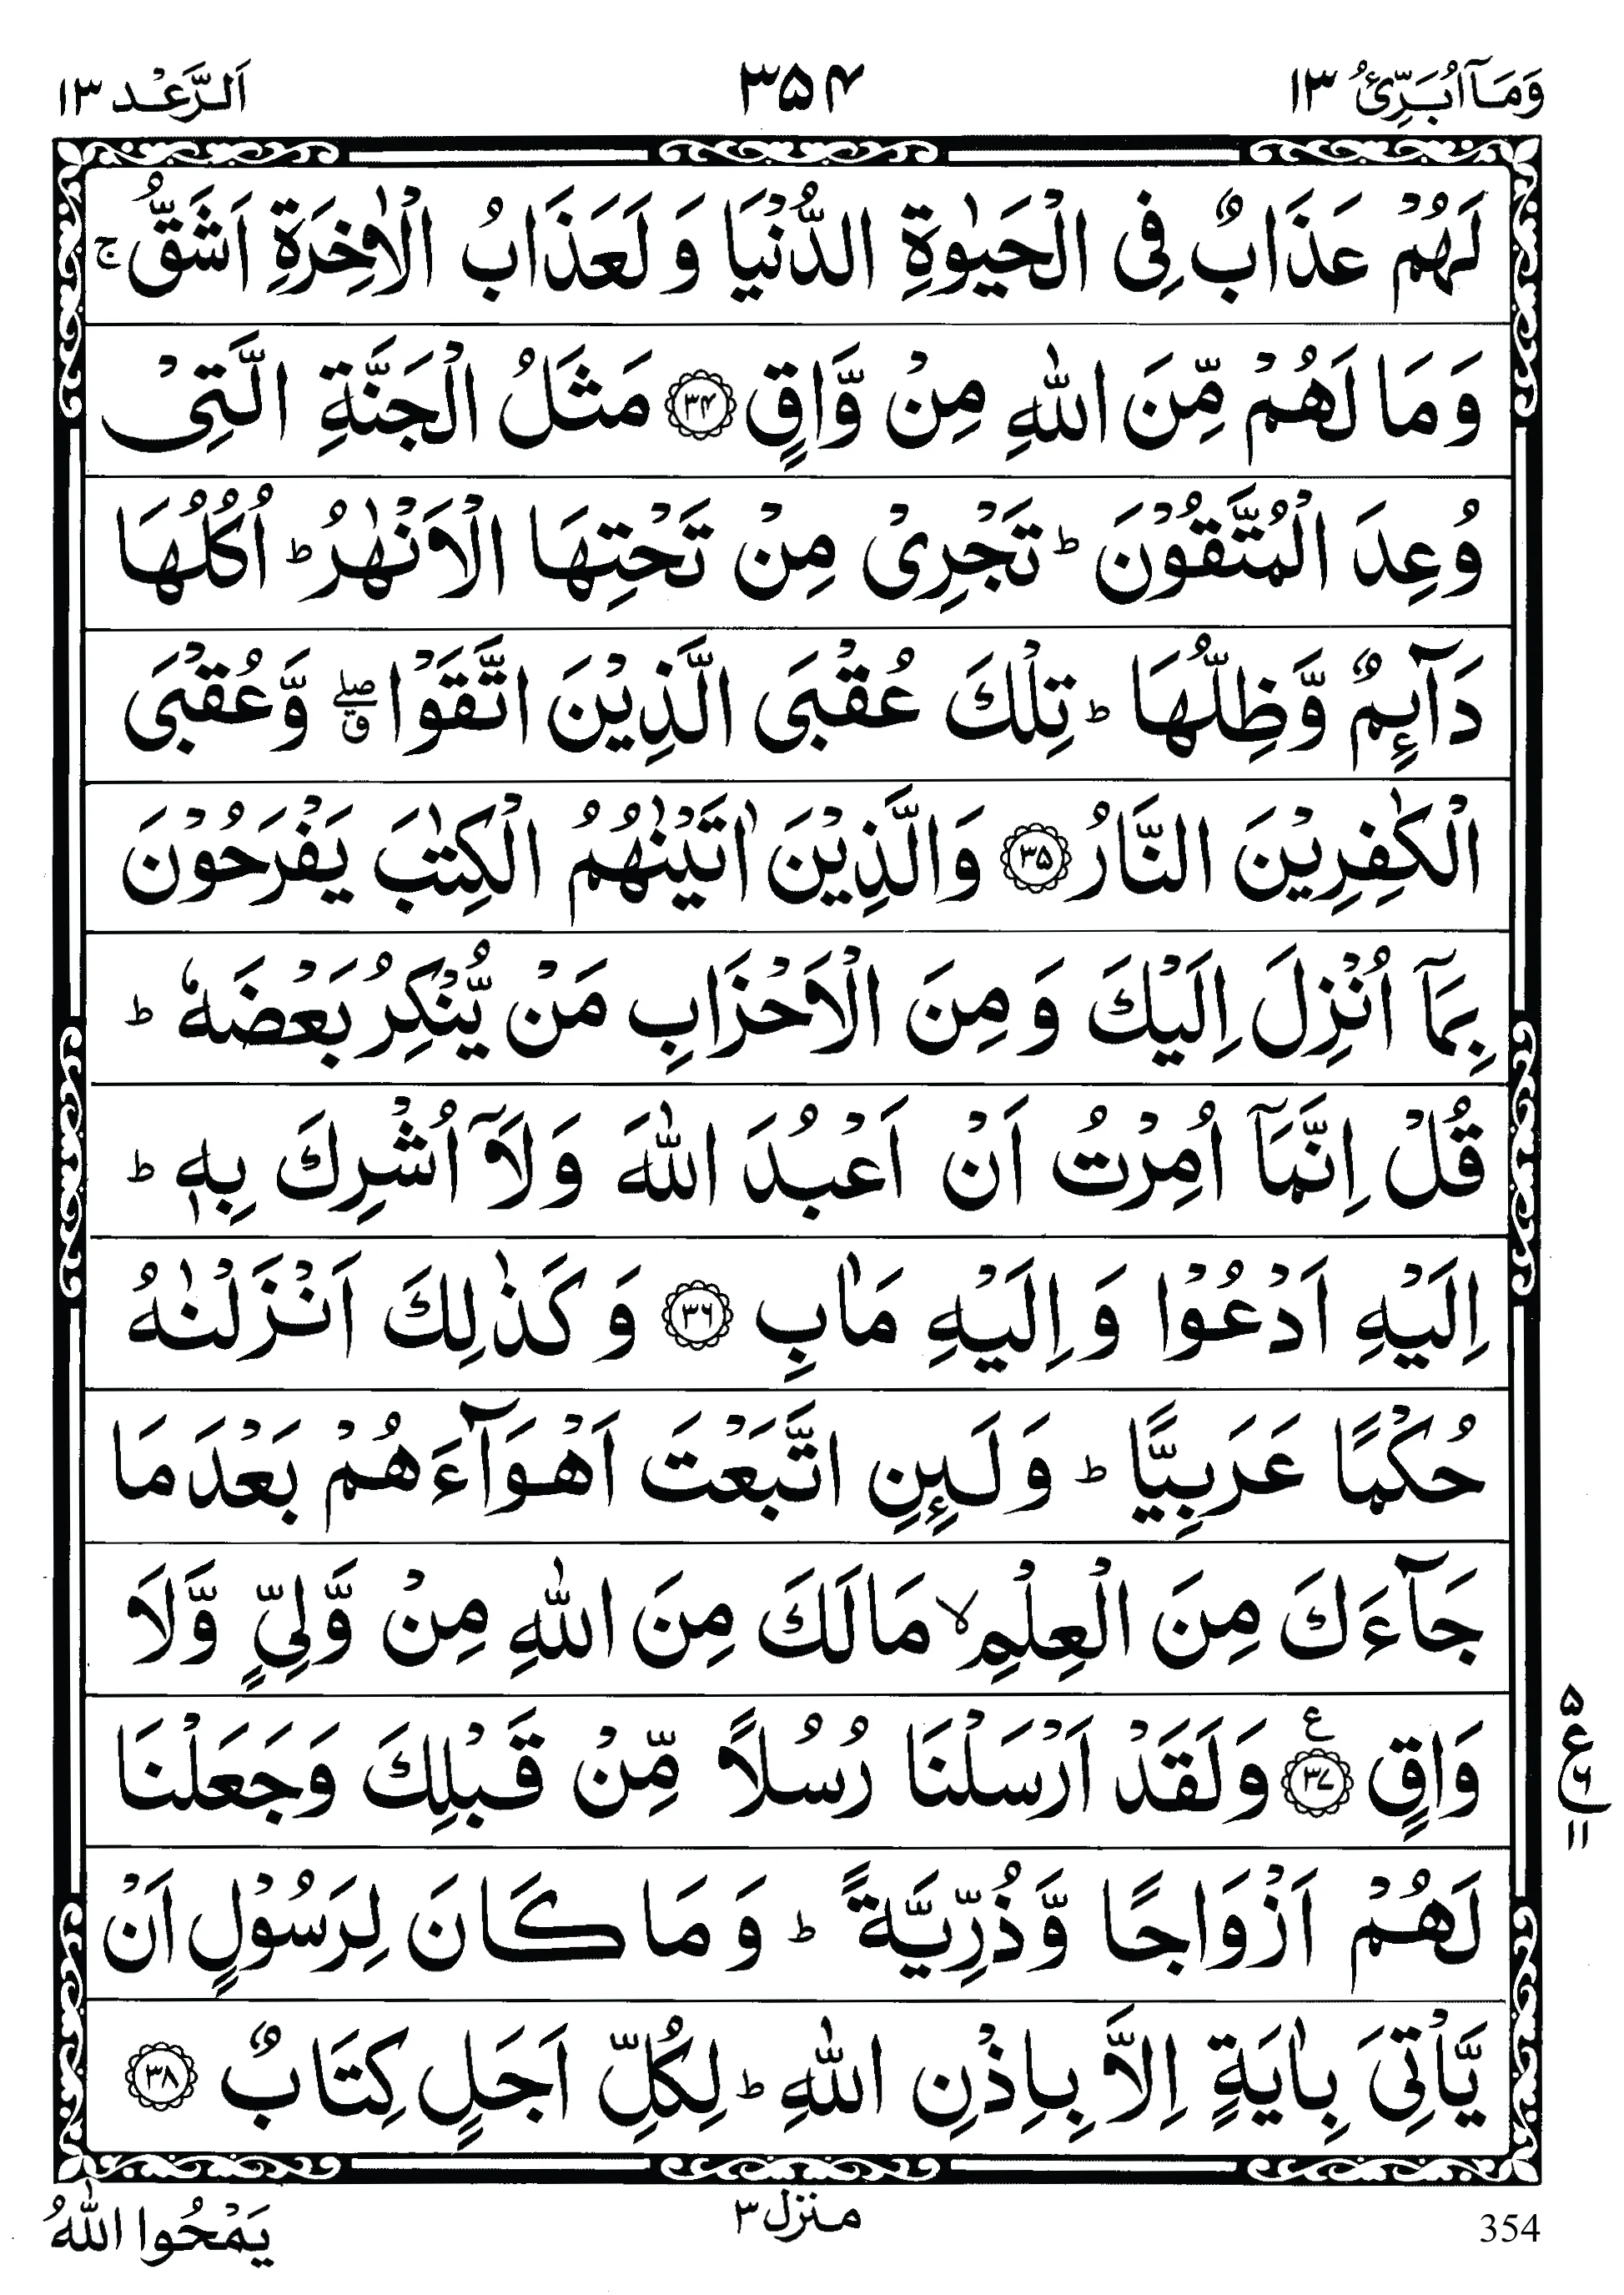 وَمَاۤ اُبَرِّئُ ١٣
٣٥٤
اَلرَّعْد ١٣
لَهُمْ عَذَابٌ فِی الْحَيٰوةِ الدُّنْيَا وَ لَعَذَابُ الْاٰخِرَةِ اَشَقُّ ۚ
وَ مَا لَهُمْ مِّنَ اللّٰهِ مِنْ وَّاقٍ ۝٣٤ مَثَلُ الْجَنَّةِ الَّتِیْ
وُعِدَ الْمُتَّقُوْنَ ؕ تَجْرِیْ مِنْ تَحْتِهَا الْاَنْهٰرُ ؕ اُكُلُهَا
دَآىِٕمٌ وَّظِلُّهَا ؕ تِلْكَ عُقْبَی الَّذِيْنَ اتَّقَوْا ۖۗ وَّعُقْبَی
الْكٰفِرِيْنَ النَّارُ ۝٣٥ وَالَّذِيْنَ اٰتَيْنٰهُمُ الْكِتٰبَ يَفْرَحُوْنَ
بِمَاۤ اُنْزِلَ اِلَيْكَ وَ مِنَ الْاَحْزَابِ مَنْ يُّنْكِرُ بَعْضَهٗ ؕ
قُلْ اِنَّمَاۤ اُمِرْتُ اَنْ اَعْبُدَ اللّٰهَ وَلَاۤ اُشْرِكَ بِهٖ ؕ
اِلَيْهِ اَدْعُوْا وَ اِلَيْهِ مَاٰبِ ۝٣٦ وَ كَذٰلِكَ اَنْزَلْنٰهُ
حُكْمًا عَرَبِيًّا ؕ وَ لَىِٕنِ اتَّبَعْتَ اَهْوَآءَهُمْ بَعْدَ مَا
جَآءَكَ مِنَ الْعِلْمِ ۙ مَا لَكَ مِنَ اللّٰهِ مِنْ وَّلِیٍّ وَّلَا
وَاقٍ ۝٣٧ ع وَلَقَدْ اَرْسَلْنَا رُسُلًا مِّنْ قَبْلِكَ وَجَعَلْنَا
٥ ع ٦ ١١
لَهُمْ اَزْوَاجًا وَّذُرِّيَّةً ؕ وَ مَا كَانَ لِرَسُوْلٍ اَنْ
يَّاْتِیَ بِاٰيَةٍ اِلَّا بِاِذْنِ اللّٰهِ ؕ لِكُلِّ اَجَلٍ كِتَابٌ ۝٣٨
354
منزل ٣
يَمْحُوا اللّٰهُ